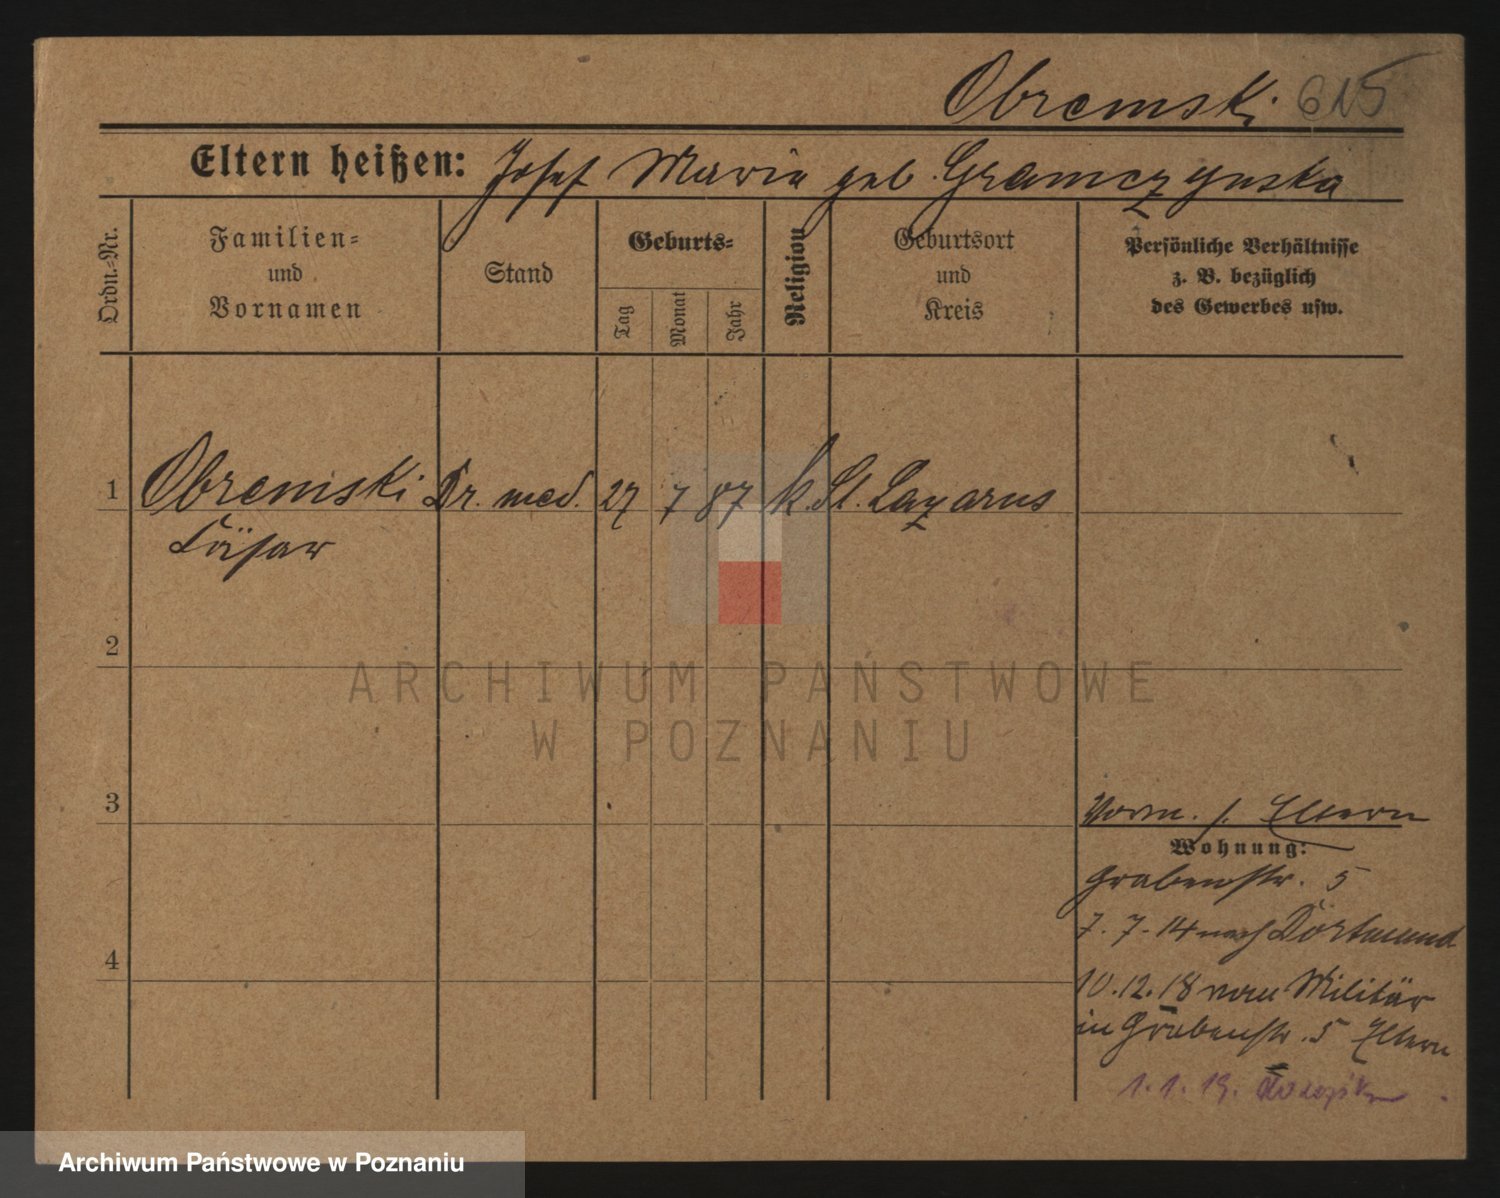 Obremski 615
Eltern heißen: Josef Maria geb. Gramczynska
Ordn.-Nr.
Familien-
und
Vornamen
Stand
Geburts-
Tag
Monat
Jahr
Religion
Geburtsort
und
Kreis
Persönliche Verhältnisse
z. B. bezüglich
des Gewerbes usw.
1
Obremski Dr. med. 27 7 87 k. St. Lazarus
Cäsar
2
3
4
Vorm. s. Eltern
Wohnung:
Grabenstr. 5
7. 7. 14 nach Dortmund
10.12.18 vom Militär
in Grabenstr. 5 Eltern
1. 1. 19.
ARCHIWUM PAŃSTWOWE
W POZNANIU
Archiwum Państwowe w Poznaniu